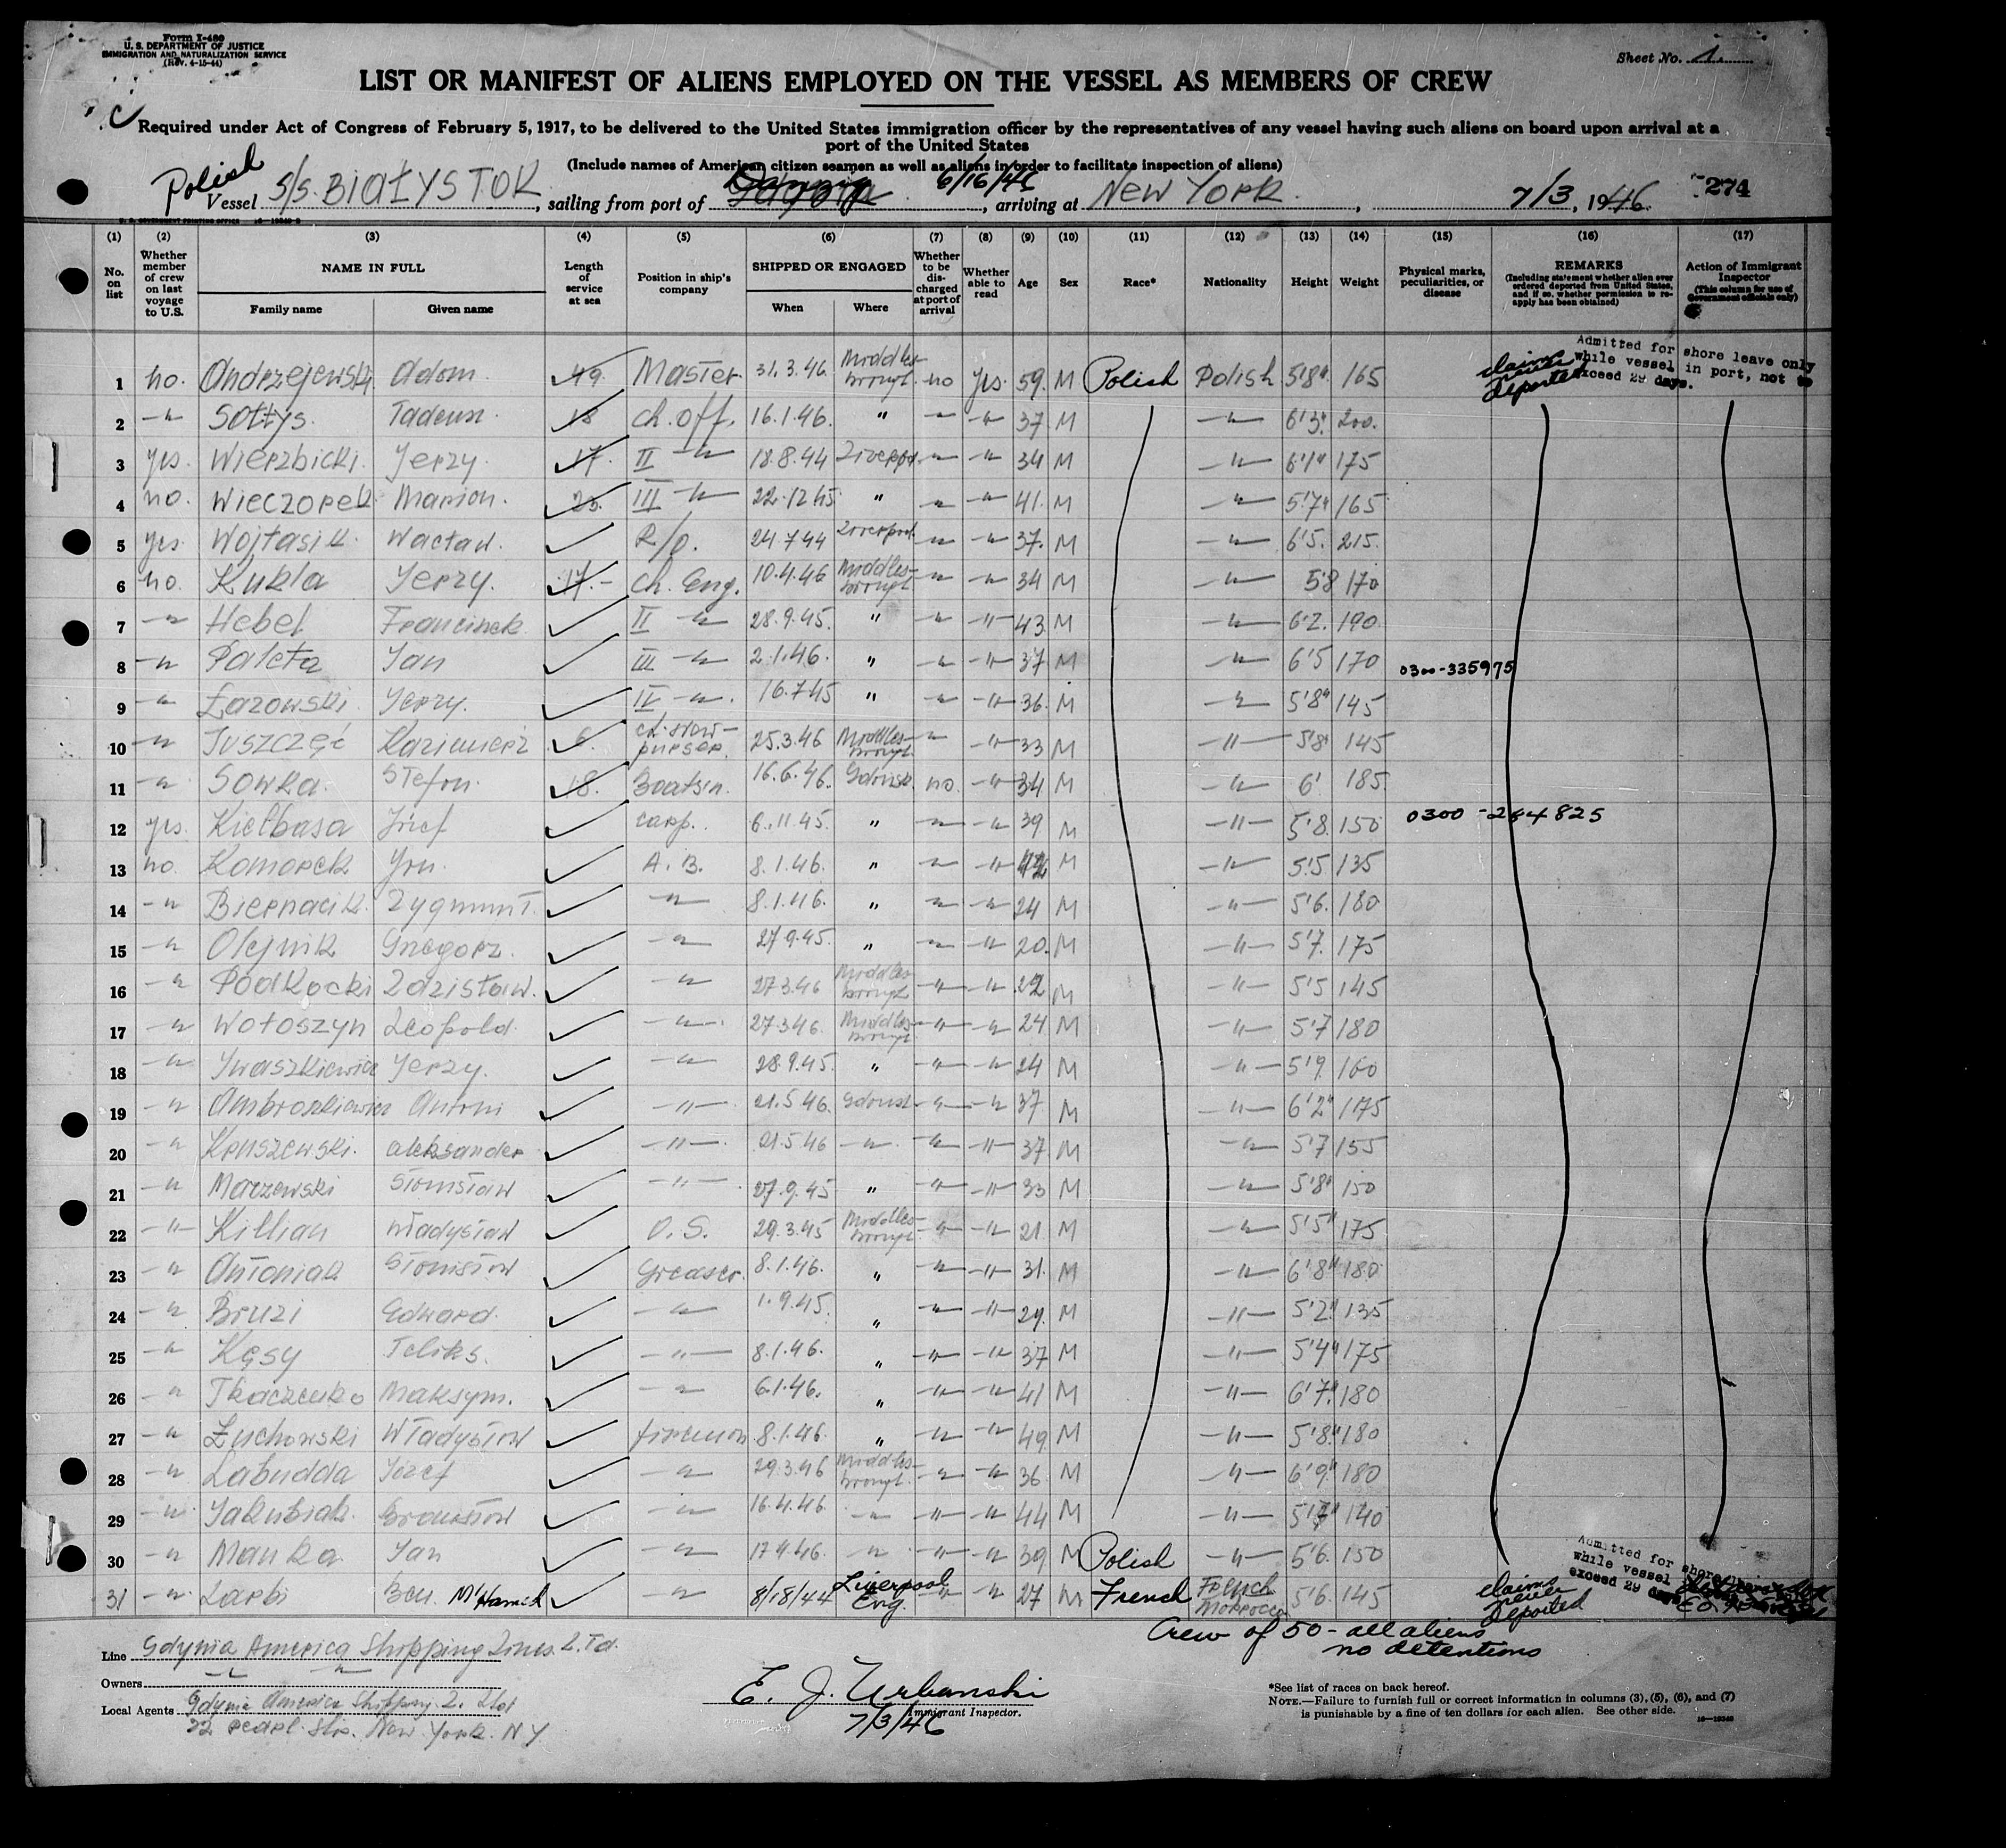 Form I-480
U. S. DEPARTMENT OF JUSTICE
IMMIGRATION AND NATURALIZATION SERVICE
(Rev. 4-15-44)
Sheet No. 1.
LIST OR MANIFEST OF ALIENS EMPLOYED ON THE VESSEL AS MEMBERS OF CREW
Required under Act of Congress of February 5, 1917, to be delivered to the United States immigration officer by the representatives of any vessel having such aliens on board upon arrival at a
port of the United States
(Include names of American citizen seamen as well as aliens in order to facilitate inspection of aliens)
Polish
Vessel S/S. BIAŁYSTOK, sailing from port of 6/16/46, arriving at NEW YORK., 7/3, 1946. 274
(1) (2) (3) (4) (5) (6) (7) (8) (9) (10) (11) (12) (13) (14) (15) (16) (17)
No. on list
Whether member of crew on last voyage to U.S.
NAME IN FULL
Family name Given name
Length of service at sea
Position in ship's company
SHIPPED OR ENGAGED
When Where
Whether to be discharged at port of arrival
Whether able to read
Age Sex Race* Nationality Height Weight
Physical marks, peculiarities, or disease
REMARKS
(Including statement whether alien ever ordered deported from United States, and if so, whether permission to re-apply has been obtained)
Action of Immigrant Inspector
(This column for use of Government officials only)
Admitted for shore leave only
while vessel in port, not to
exceed 29 days.
1 no. Andrzejewski Adam. 49. Master. 31.3.46. Middlesbrough. no yes. 59. M Polish Polish 5'8" 165 claims never deported
2 -"- Sołtys. Tadeusz. 18 ch. off. 16.1.46. " -"- -"- 37 M -"- 6'3" 200.
3 yes. Wierzbicki. Jerzy. 17. II -"- 18.8.44 Liverpol. -"- -"- 34 M -"- 6'1" 175
4 no. Wieczorek Marian. 23. III -"- 22.12 45 " -"- -"- 41. M -"- 5'7" 165
5 yes. Wojtasik. Wacław. R/o. 24.7 44 Liverpool. -"- -"- 37. M -"- 6'5. 215.
6 no. Kukla Jerzy. 17.- ch. Eng. 10.4.46 Middlesbrough -"- -"- 34 M -"- 5'8 170
7 -"- Hebel Franciszek II -"- 28.9.45. " -"- -"- 43 M -"- 6'2. 190.
8 -"- Paleta Jan III -"- 2.1.46. " -"- -"- 37 M -"- 6'5 170 0300-335975
9 -"- Łazowski. Jerzy. IV -"-. 16.7 45 " -"- -"- 36. M -"- 5'8" 145
10 -"- Juszczęć Kazimierz 6. ch. stew-purser. 25.3.46 Middlesbrough -"- -"- 33 M -"- 5'8" 145
11 -"- Sowka. Stefan. 18. Boatsn. 16.6.46. Gdansk. no. -"- 34 M -"- 6' 185.
12 yes. Kiełbasa Józef carp. 6.11.45. " -"- -"- 39 M -"- 5'8. 150 0300-264825
13 no. Komorek Jan. A. B. 8.1.46. " -"- -"- 42 M -"- 5'5 135
14 -"- Biernacik. Zygmunt. -"- 8.1.46. " -"- -"- 24 M -"- 5'6. 180
15 -"- Olejnik Gregorz. -"- 27 9.45. " -"- -"- 20. M -"- 5'7. 175
16 -"- Podkocki Zdzisław. -"- 27 3.46 Middlesbrough -"- -"- 22 M -"- 5'5 145
17 -"- Wołoszyn Leopold. -"- 27 3 46. Middlesbrough -"- -"- 24 M -"- 5'7 180
18 -"- Iwaszkiewicz Jerzy. -"- 28.9.45. " -"- -"- 24 M -"- 5'9. 160
19 -"- Ambroszkiewicz Antoni -"- 21.5 46. Gdansk -"- -"- 37 M -"- 6'2" 175
20 -"- Kruszewski. Aleksander -"- 21.5 46 -"- -"- -"- 37 M -"- 5'7 155
21 -"- Marzewski Stanisław -"- 27.9.45 " -"- -"- 33 M -"- 5'8" 150
22 -"- Killian Władysław O. S. 29.3.45 Middlesbrough. -"- -"- 21 M -"- 5'5" 175
23 -"- Antoniak Stanisław Greaser. 8.1.46. " -"- -"- 31. M -"- 6'8" 180
24 -"- Bruzi Edward. -"- 1.9.45. " -"- -"- 29. M -"- 5'2" 135
25 -"- Kęsy Feliks. -"- 8.1.46. " -"- -"- 37 M -"- 5'4" 175
26 -"- Tkaczenko Maksym. -"- 6.1.46. " -"- -"- 41 M -"- 6'7" 180
27 -"- Żuchowski Władysław fireman. 8.1.46. " -"- -"- 49. M -"- 5'8" 180
28 -"- Labudda Józef -"- 29.3.46 Middlesbrough. -"- -"- 36. M -"- 6'9" 180
29 -"- Jakubiak. Bronisław -"- 16.4.46. -"- -"- -"- 44 M -"- 140
30 -"- Manka Jan -"- 17 4.46. -"- -"- -"- 39 M Polish -"- 5'6. 150
31 -"- Larbi Ben. M'Hamed -"- 8/18/44 Liverpool Eng. -"- -"- 27 M French French Morrocco 5'6. 145 claims never deported
Admitted for shore leave
while vessel
exceed 29 days
Crew of 50 - all aliens
no detentions
Line Gdynia America Shipping Lines. L.Td.
Owners -"- -"-
Local Agents Gdynia America Shipping L.
32 Pearl. Str. New York. NY
E. J. Urbanski
Immigrant Inspector.
7/3/46
*See list of races on back hereof.
NOTE.—Failure to furnish full or correct information in columns (3), (5), (6), and (7)
is punishable by a fine of ten dollars for each alien. See other side.